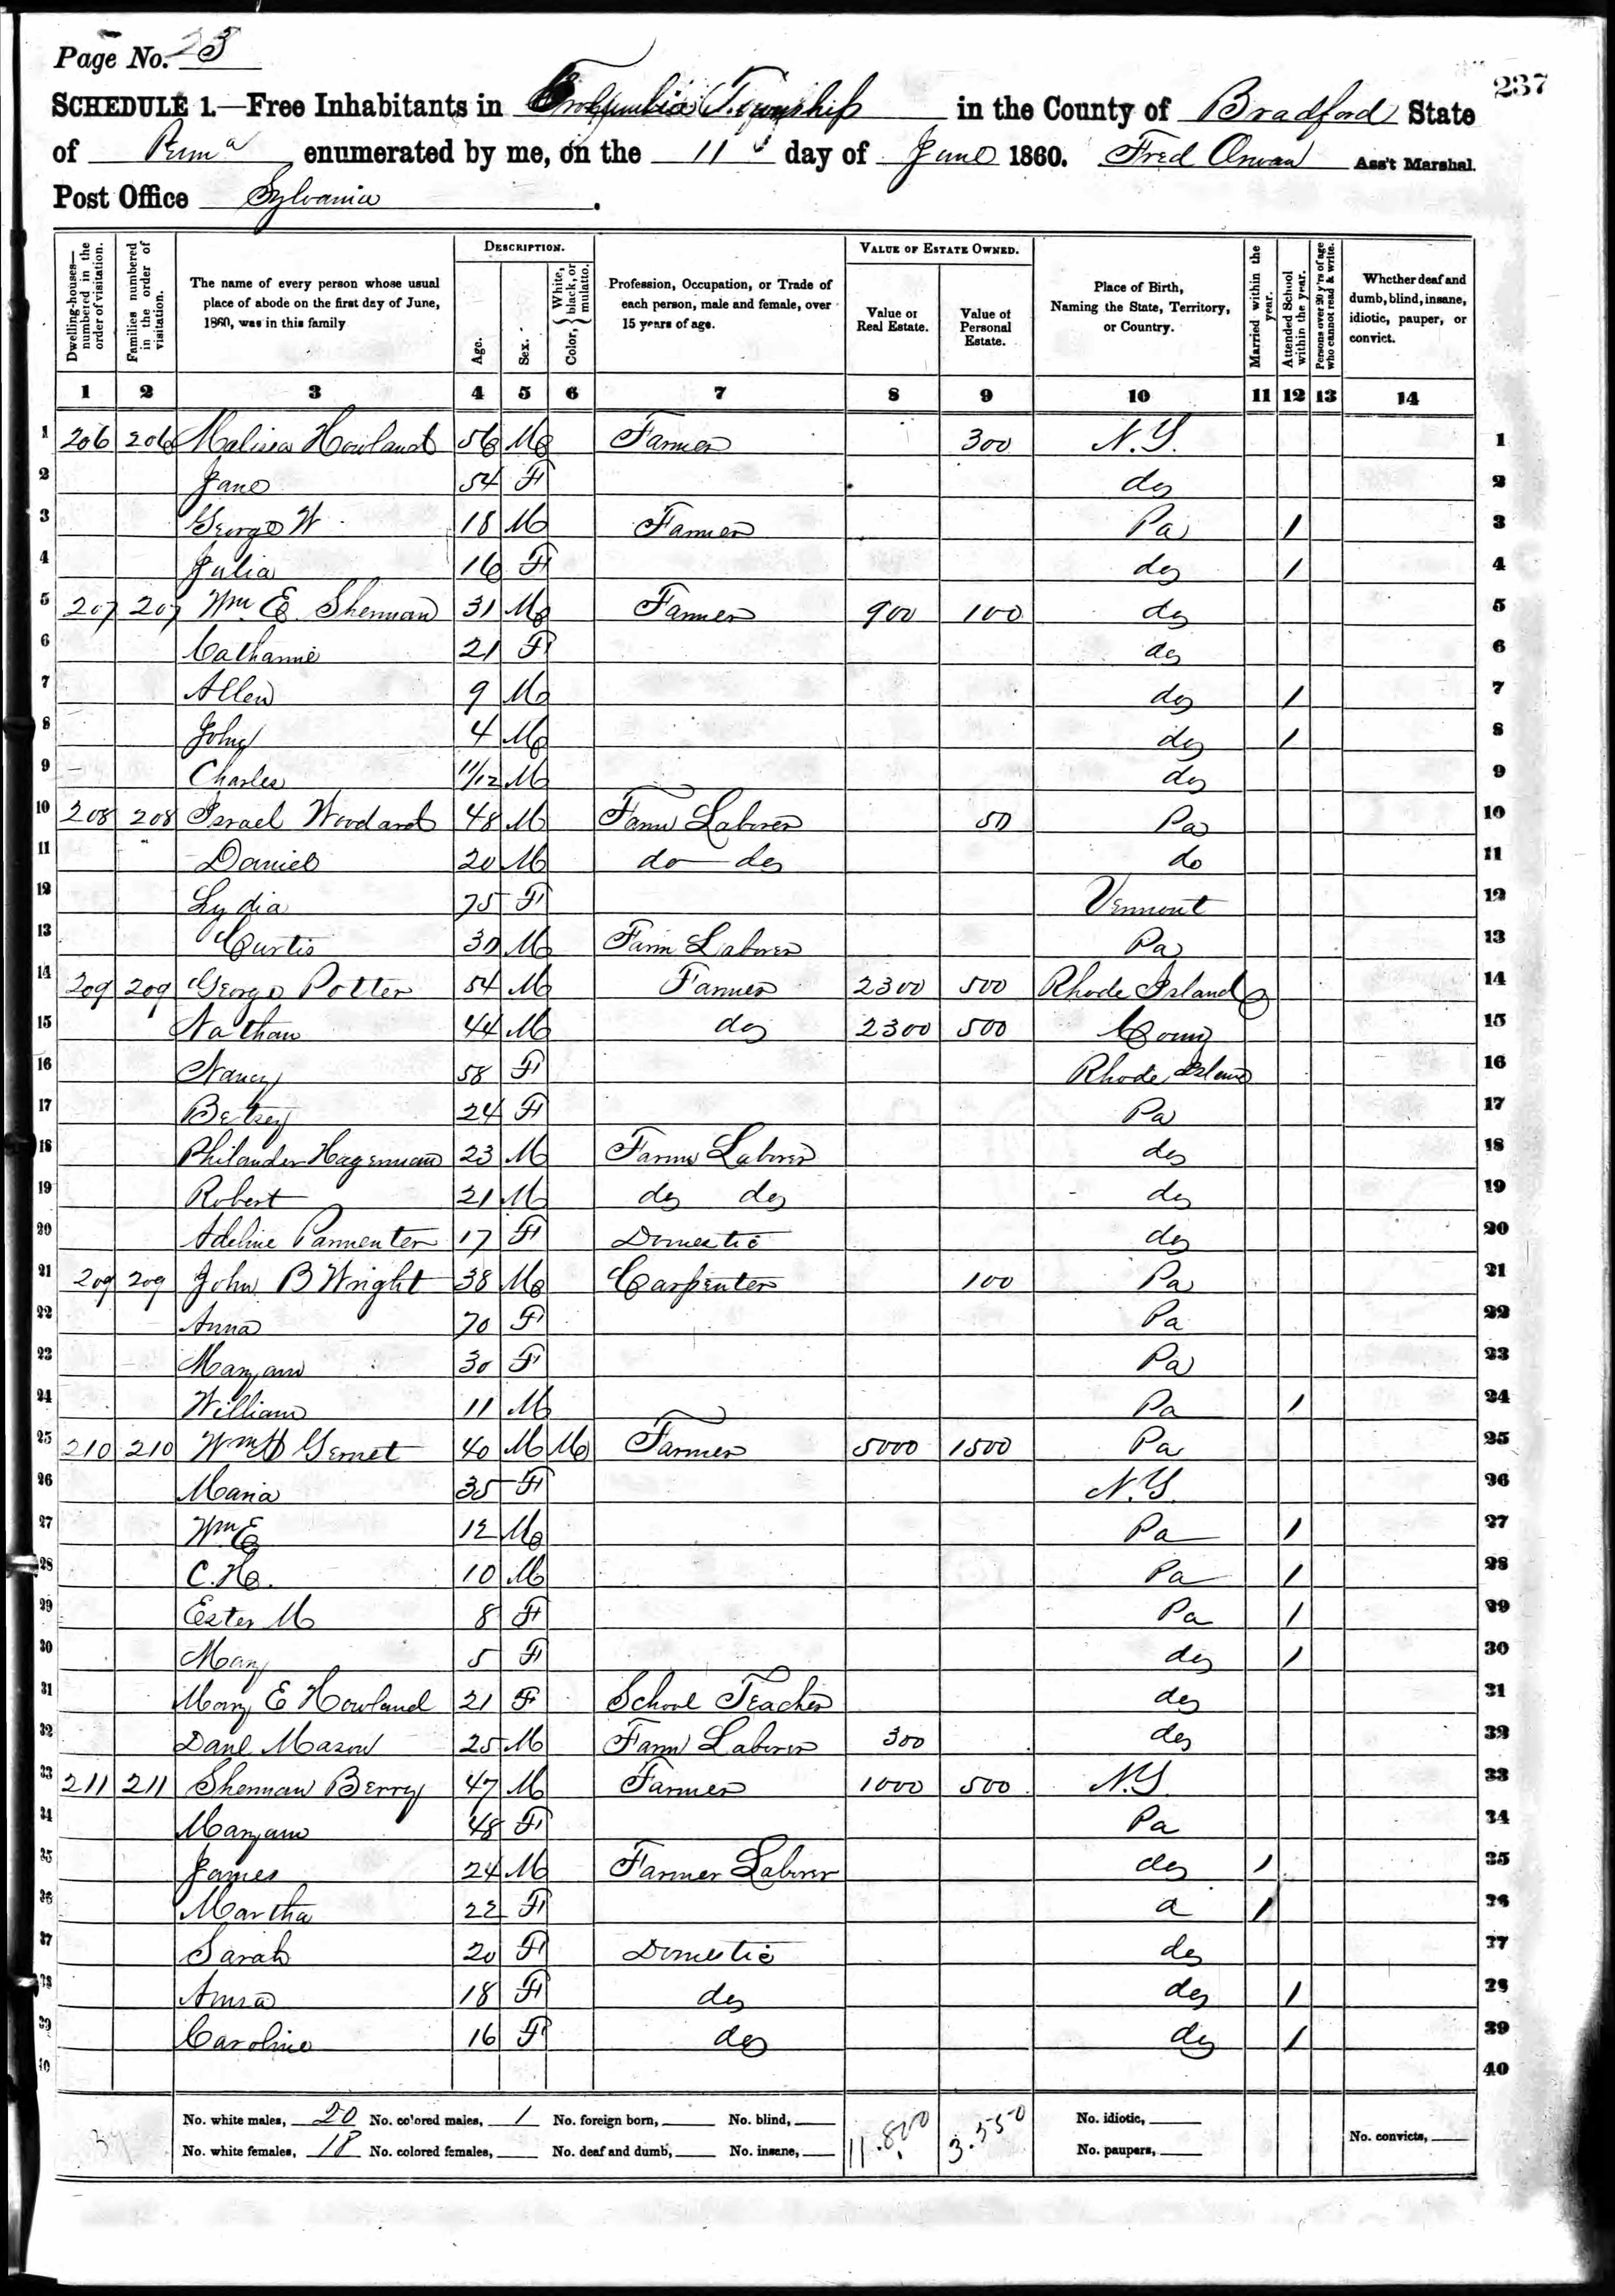 Page No. 23
237
SCHEDULE 1.—Free Inhabitants in Columbia Township in the County of Bradford State
of Penna enumerated by me, on the 11 day of June 1860. Fred Orwan Ass't Marshal.
Post Office Sylvania.
Dwelling-houses—numbered in the order of visitation. Families numbered in the order of visitation. The name of every person whose usual place of abode on the first day of June, 1860, was in this family DESCRIPTION. Age. Sex. Color, White, black, or mulatto. Profession, Occupation, or Trade of each person, male and female, over 15 years of age. VALUE OF ESTATE OWNED. Value of Real Estate. Value of Personal Estate. Place of Birth, Naming the State, Territory, or Country. Married within the year. Attended School within the year. Persons over 20 y'rs of age who cannot read & write. Whether deaf and dumb, blind, insane, idiotic, pauper, or convict.
1 2 3 4 5 6 7 8 9 10 11 12 13 14
1 206 206 Howland 56 M Farmer 300 N.Y. 1
2 Jane 54 F do 2
3 George W 18 M Farmer Pa / 3
4 Julia 16 F do / 4
5 207 207 Wm. E. Sherman 31 M Farmer 900 100 do 5
6 Catharine 21 F do 6
7 Allen 9 M do / 7
8 John 4 M do / 8
9 Charles 11/12 M do 9
10 208 208 Israel Woodard 48 M Farm Laborer 50 Pa 10
11 Daniel 20 M do do do 11
12 Lydia 75 F Vermont 12
13 Curtis 30 M Farm Laborer Pa 13
14 209 209 George Potter 54 M Farmer 2300 500 Rhode Island 14
15 Nathan 44 M do 2300 500 Conn 15
16 Nancy 58 F Rhode Island 16
17 Betsey 24 F Pa 17
18 Philander Hagerman 23 M Farm Laborer do 18
19 Robert 21 M do do do 19
20 Adeline Parmenter 17 F Domestic do 20
21 209 209 John B Wright 38 M Carpenter 100 Pa 21
22 Anna 70 F Pa 22
23 Maryann 30 F Pa 23
24 William 11 M Pa / 24
25 210 210 Wm H Gernet 40 M M Farmer 5000 1500 Pa 25
26 Maria 35 F N.Y. 26
27 Wm E 12 M Pa / 27
28 C. H. 10 M Pa / 28
29 Ester M 8 F Pa / 29
30 Mary 5 F do / 30
31 Mary E Howland 21 F School Teacher do 31
32 Danl Mason 25 M Farm Laborer 300 do 32
33 211 211 Sherman Berry 47 M Farmer 1000 500 N.Y. 33
34 Maryann 48 F Pa 34
35 James 24 M Farmer Laborer do / 35
36 Martha 22 F a / 36
37 Sarah 20 F Domestic do 37
38 18 F do do / 38
39 Caroline 16 F do do / 39
40 40
No. white males, 20 No. colored males, 1 No. foreign born, No. blind, 11.800 3.550 No. idiotic,
No. white females, 18 No. colored females, No. deaf and dumb, No. insane, No. paupers, No. convicts,